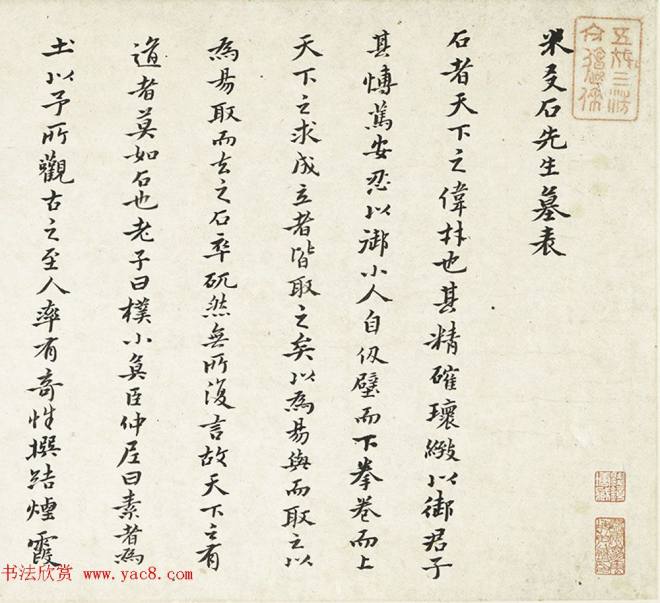 米友石先生墓表
石者天下之偉材也其精確瓌緻以御君子
其愽萬安忍以御小人自仭壁而下拳卷而上
天下之求成立者皆取之矣以為易與而取之以
為易取而去之石率矹然無所復言故天下之有
道者莫如石也老子曰樸小莫臣仲尼曰素者為
土以予所觀古之至人率有奇性撰結煙霞
书法欣赏 www.yac8.com